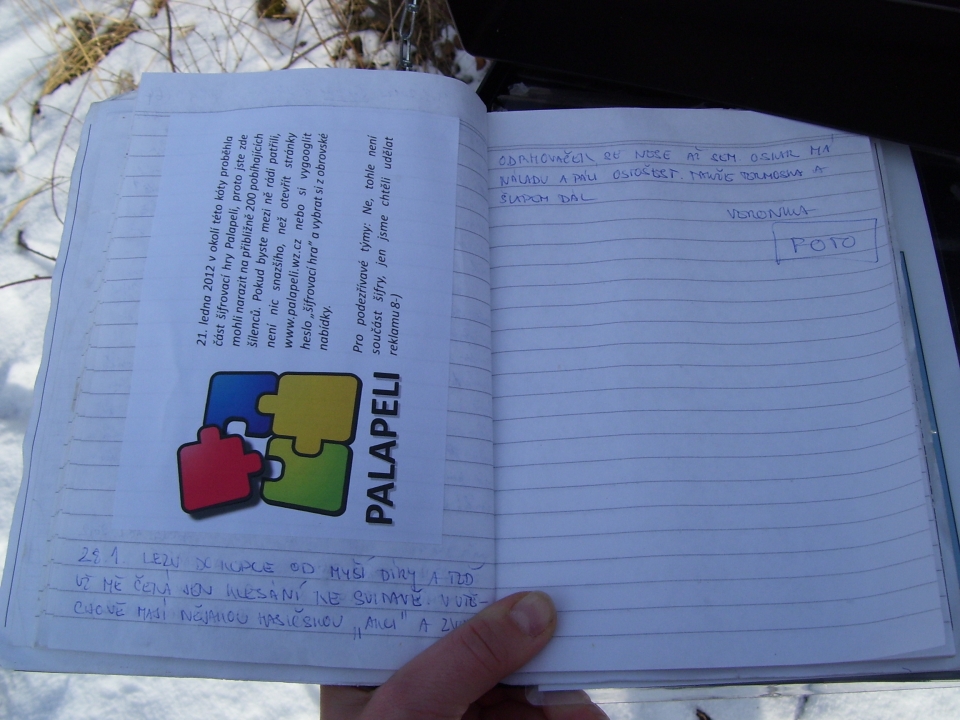 21. ledna 2012 v okolí této kóty proběhla
část šifrovací hry Palapeli, proto jste zde
mohli narazit na přibližně 200 pobíhajících
šílenců. Pokud byste mezi ně rádi patřili,
není nic snazšího, než otevřít stránky
www.palapeli.wz.cz nebo si vygooglit
heslo „šifrovací hra“ a vybrat si z obrovské
nabídky.
Pro podezřívavé týmy: Ne, tohle není
součást šifry, jen jsme chtěli udělat
reklamu 8-)
PALAPELI
28.1. LEZU DO KOPCE OD MYŠÍ DÍRY A TEĎ
UŽ MĚ ČEKÁ JEN KLESÁNÍ KE SVITAVĚ. V ÚTĚ-
CHOVĚ MAJÍ NĚJAKOU HASIČSKOU „AKCI“ A
SE NESE AŽ SEM OSLNIL MÁ
NÁLADU A TERMOSKA A
ŠLAPEM DÁL
VERONIKA
FOTO